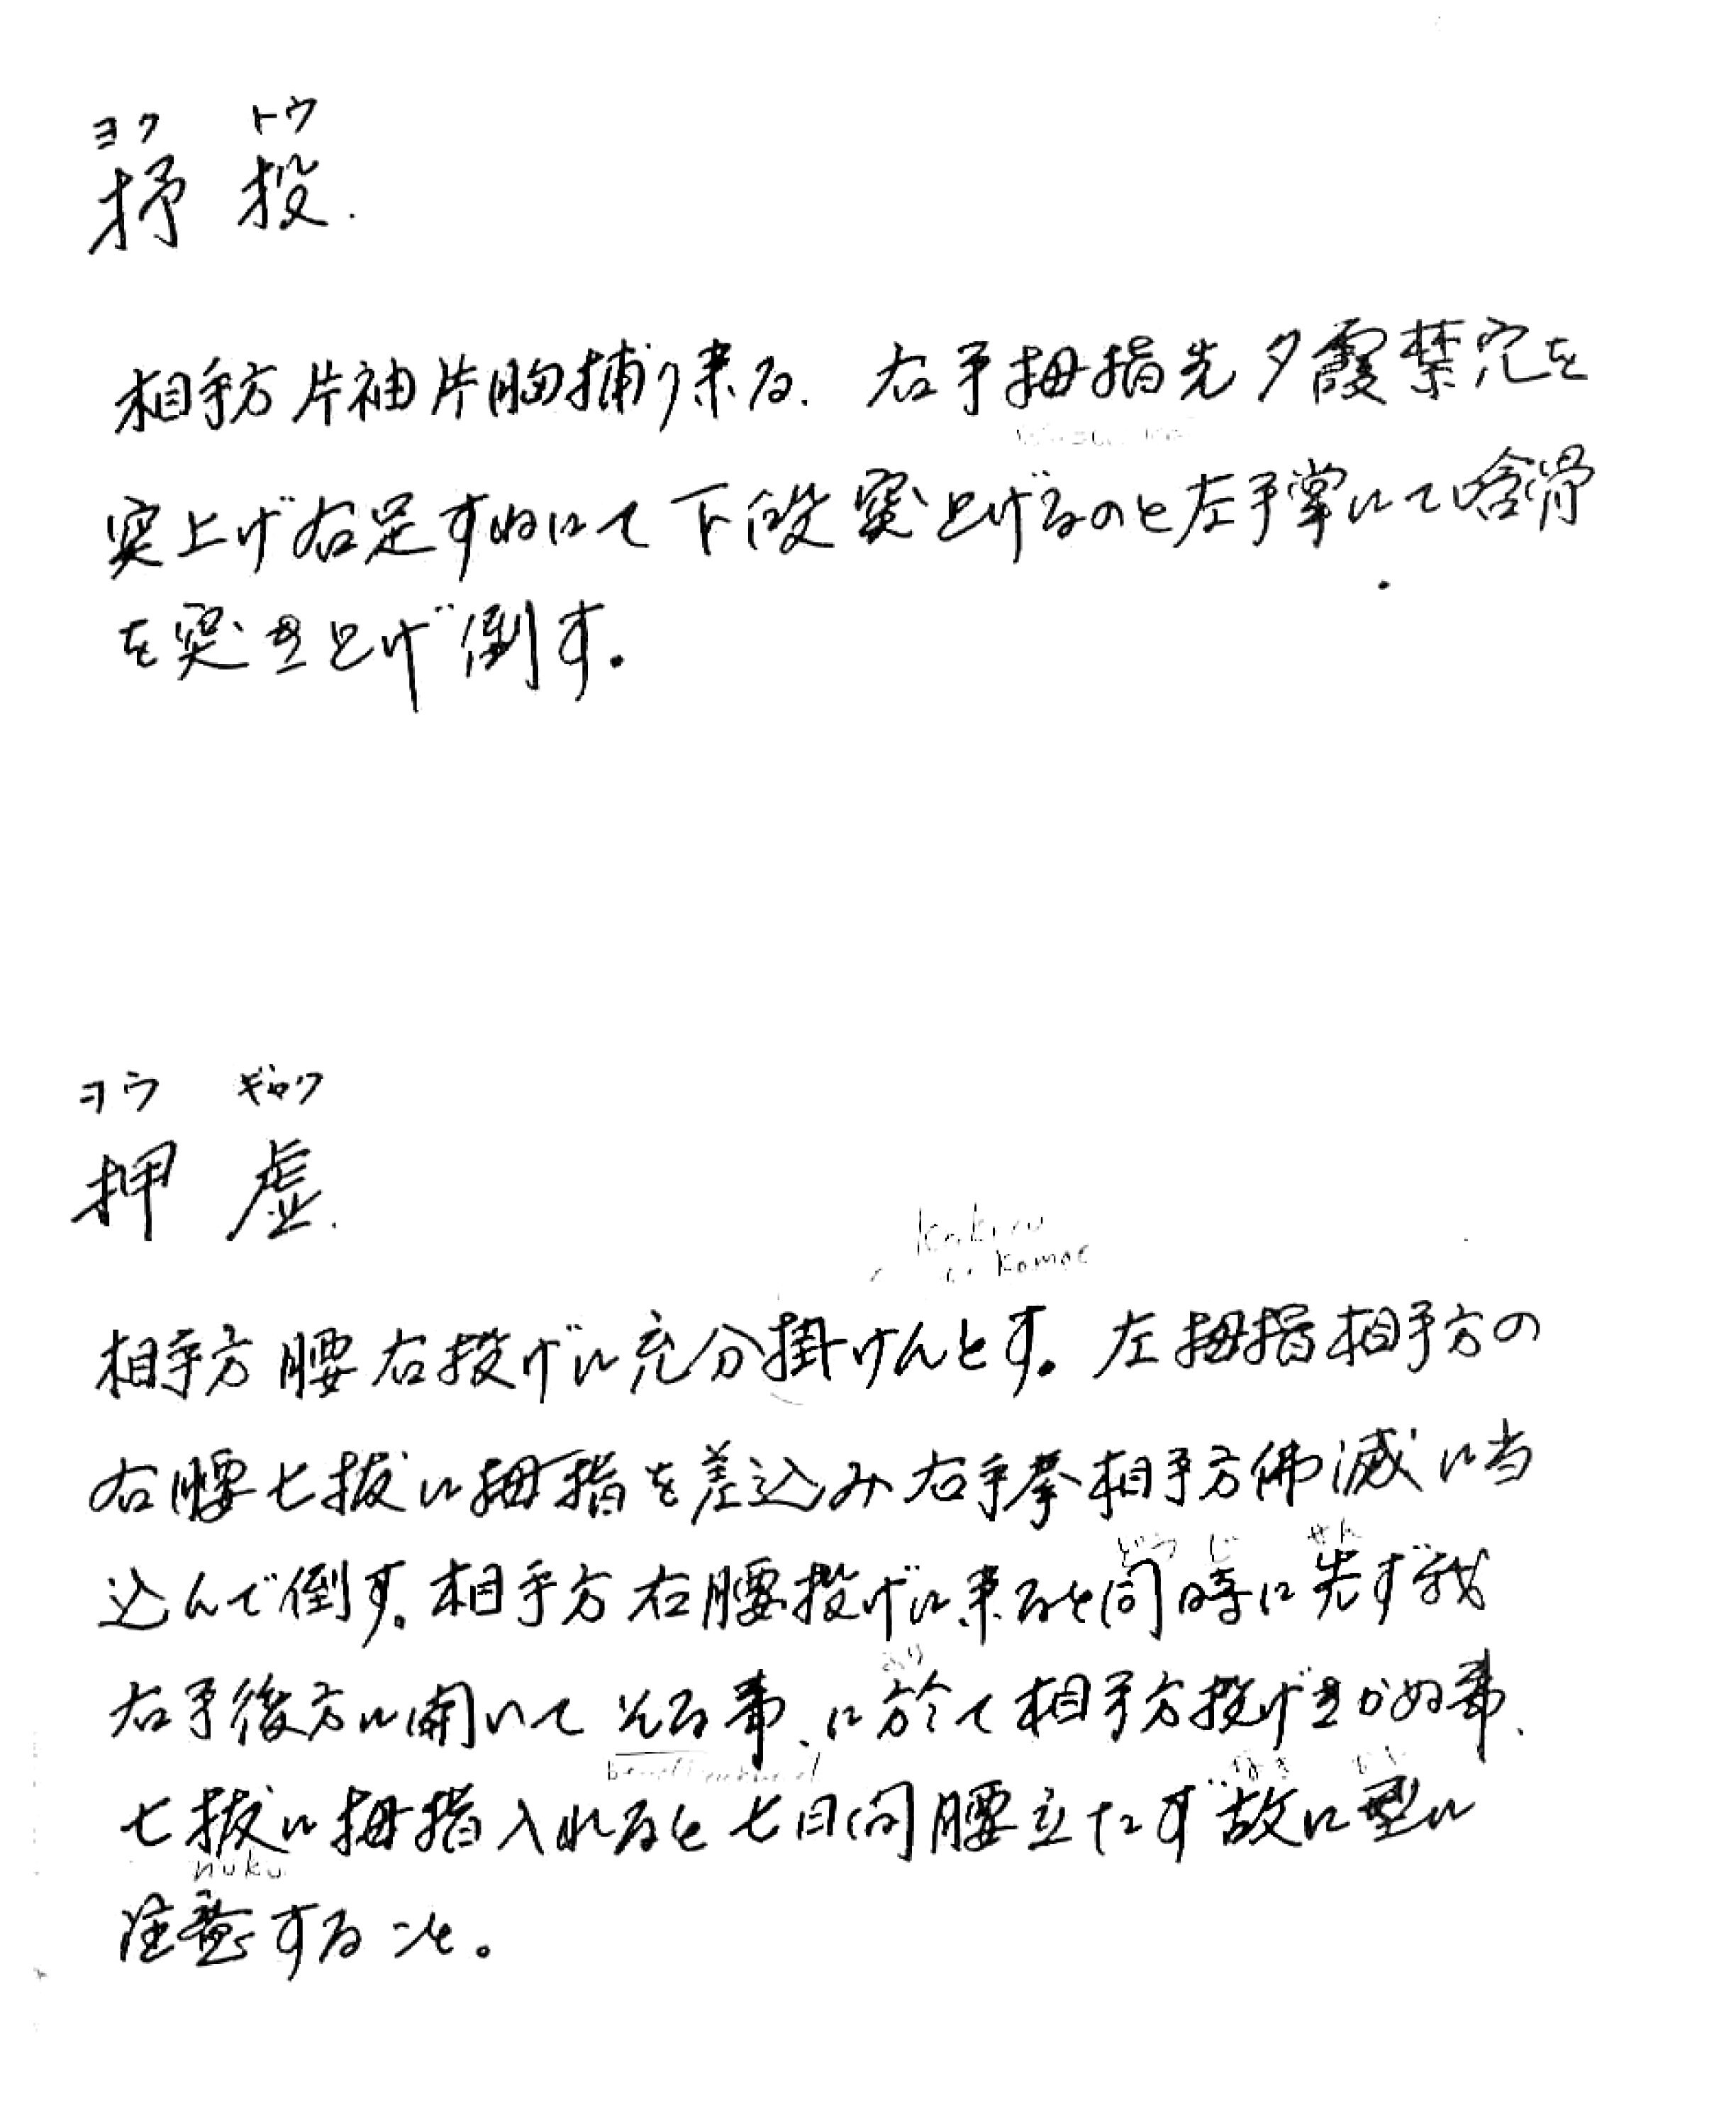 ヨク トウ
抒 投.
相手方片袖片胸捕り来る. 右手拇指先夕霞禁穴を
突上げ右足すねにて下段突上げるのと左手掌にて
を突き上げ倒す。
ヨウ ギャク
押 虚.
相手方腰右投げに充分掛けんとす。左拇指相手方の
右腰七抜に拇指を差込み右手拳相手方佛滅に当
どうじ せん
込んで倒す。相手方右腰投げに来ると同時に先ず我
右手後方に開いてそる事、に於て相手方投げきかぬ事、
七抜に拇指入れると七日間腰立たず故に型に
nuku
注意すること。